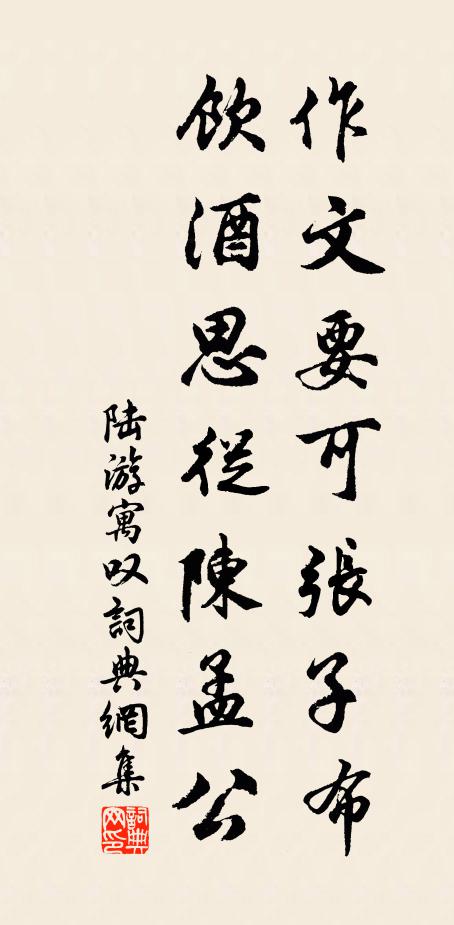 作文要可張子布
飲酒思從陳孟公
陆游寓叹詞典網集
詞典网印